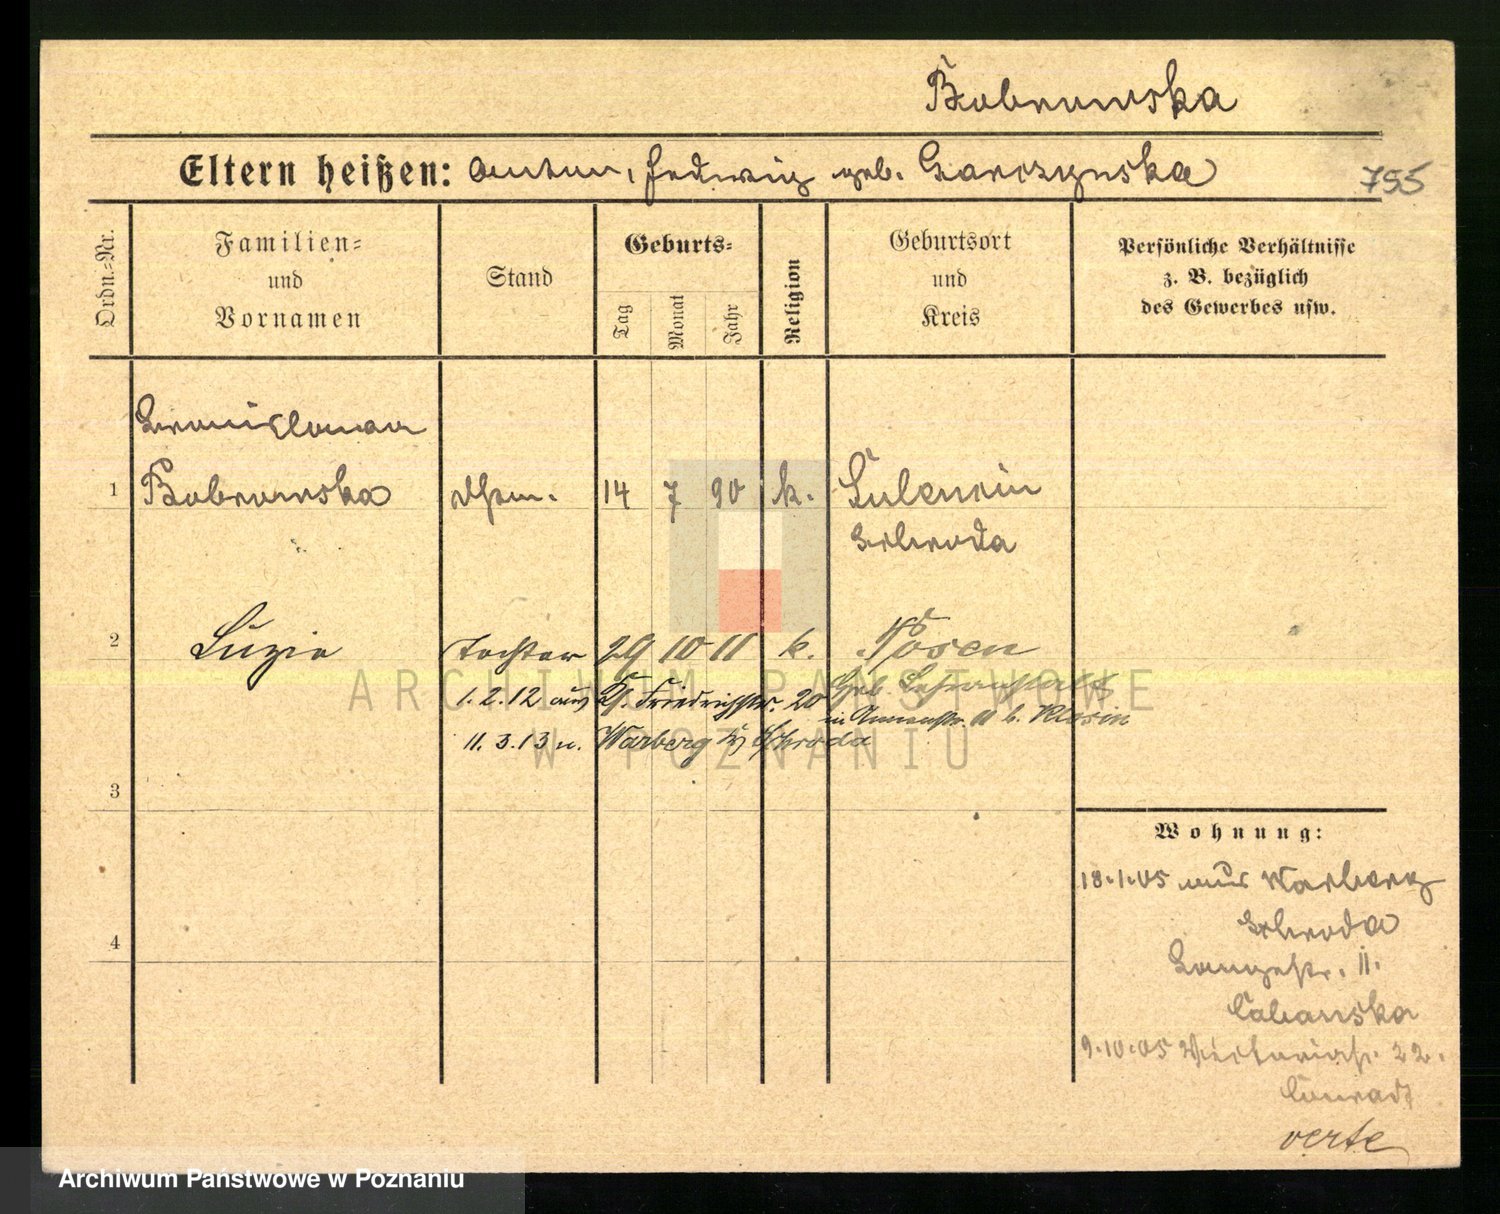 Bobrowska
Eltern heißen: Anton, Hedwig geb. Garczynska
755
Ordn.-Nr.
Familien-
und
Vornamen
Stand
Geburts-
Tag
Monat
Jahr
Religion
Geburtsort
und
Kreis
Persönliche Verhältnisse
z. B. bezüglich
des Gewerbes usw.
Bronislawa
1 Bobrowska 14 7 90 k.
Schroda
2 Luzie Tochter 29 10 11 k. Posen
1.2.12 aus Kl. Friedrichstr. 20
in Annenstr. 11 b.
11.3.13 n. Warberg Kr Schroda
3
4
Wohnung:
18.1.05 aus Warberg
Schroda
Langestr. 11.
9.10.05 Victoriastr. 22.
Conradt
verte
ARCHIWUM PAŃSTWOWE
W POZNANIU
Archiwum Państwowe w Poznaniu